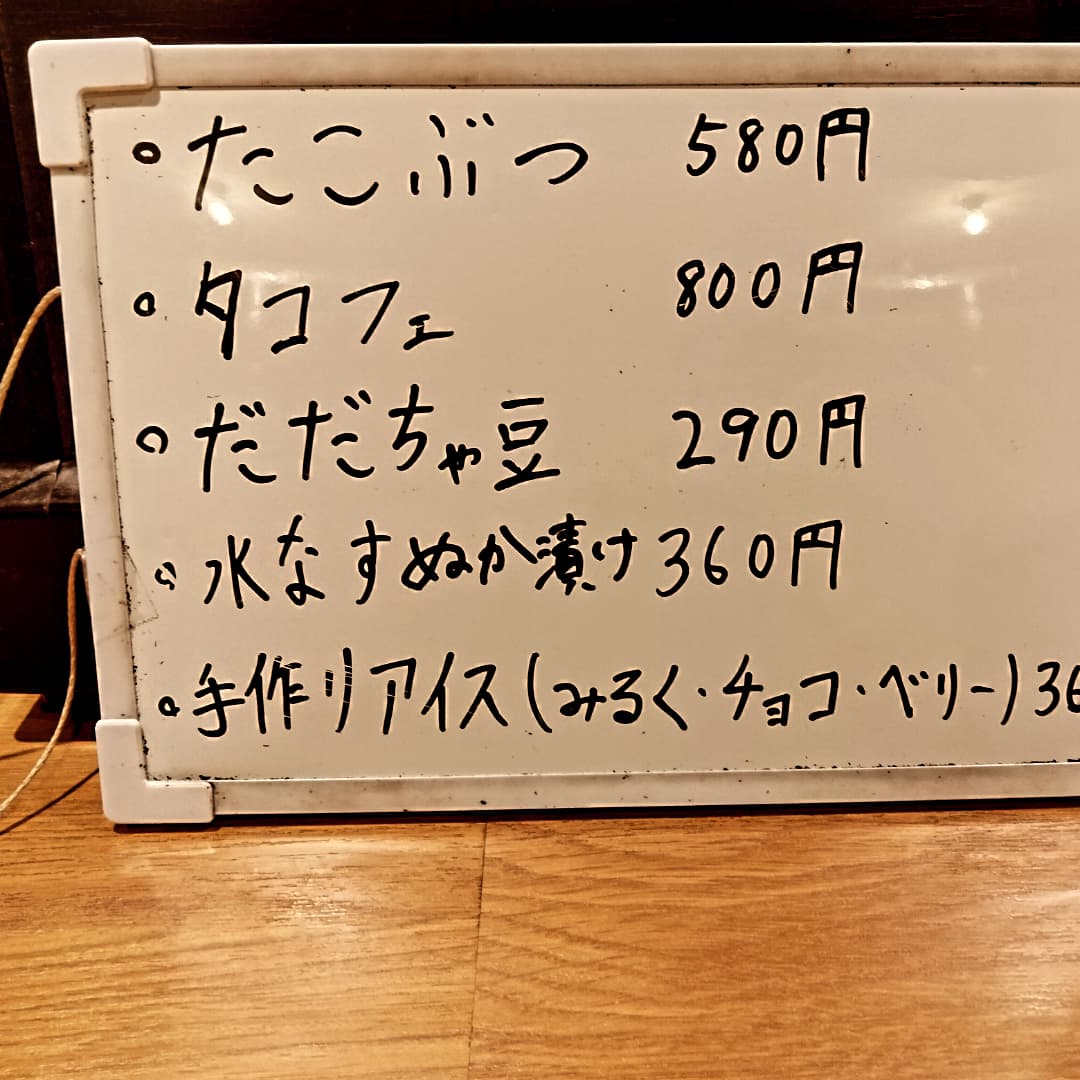 。たこぶつ 580円
。タコフェ 800円
。だだちゃ豆 290円
。水なすぬか漬け 360円
。手作りアイス(みるく・チョコ・ベリー) 36